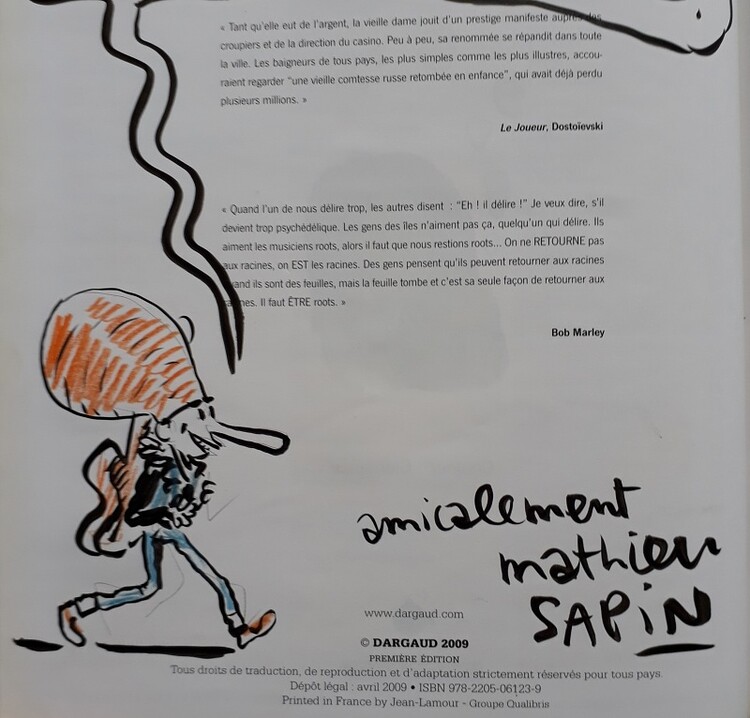 « Tant qu'elle eut de l'argent, la vieille dame jouit d'un prestige manifeste auprès des
croupiers et de la direction du casino. Peu à peu, sa renommée se répandit dans toute
la ville. Les baigneurs de tous pays, les plus simples comme les plus illustres, accou-
raient regarder "une vieille comtesse russe retombée en enfance", qui avait déjà perdu
plusieurs millions. »
Le Joueur, Dostoïevski
« Quand l'un de nous délire trop, les autres disent : "Eh ! il délire !" Je veux dire, s'il
devient trop psychédélique. Les gens des îles n'aiment pas ça, quelqu'un qui délire. Ils
aiment les musiciens roots, alors il faut que nous restions roots... On ne RETOURNE pas
aux racines, on EST les racines. Des gens pensent qu'ils peuvent retourner aux racines
quand ils sont des feuilles, mais la feuille tombe et c'est sa seule façon de retourner aux
racines. Il faut ÊTRE roots. »
Bob Marley
amicalement
mathieu
SAPIN
www.dargaud.com
© DARGAUD 2009
PREMIÈRE ÉDITION
Tous droits de traduction, de reproduction et d'adaptation strictement réservés pour tous pays.
Dépôt légal : avril 2009 • ISBN 978-2205-06123-9
Printed in France by Jean-Lamour - Groupe Qualibris